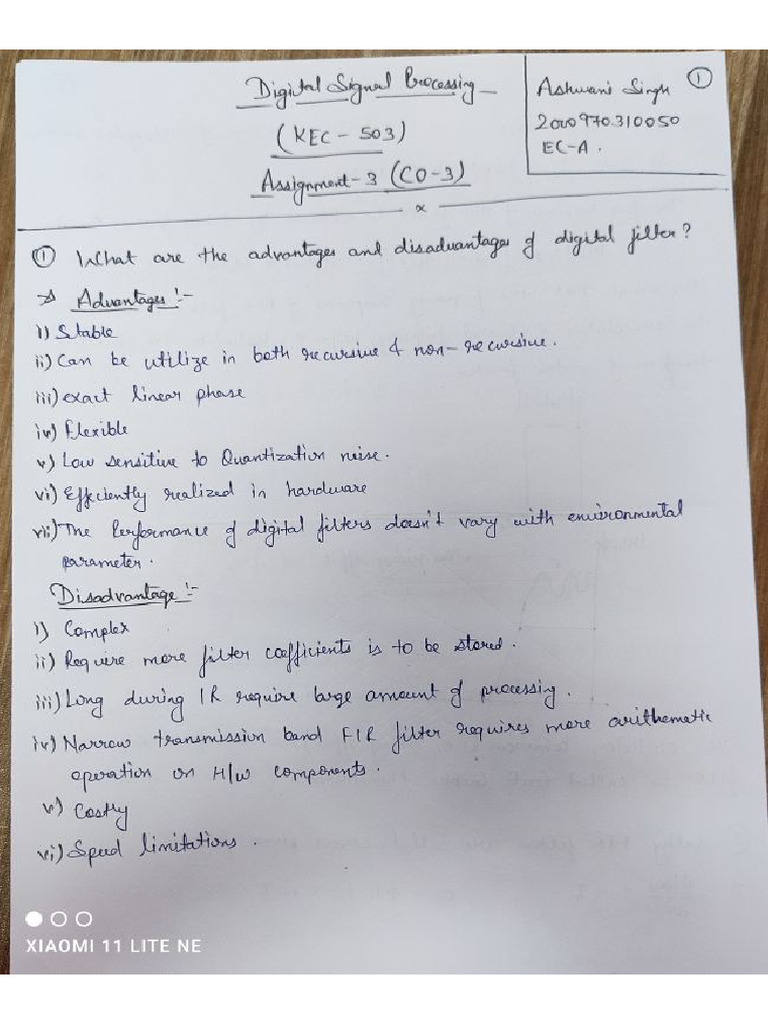 Digital Signal Processing
(KEC-503)
Assignment-3 (CO-3)
Ashwani Singh
2000970310050
EC-A.
1
x
① What are the advantages and disadvantages of digital filter?
Advantages :-
i) Stable
ii) Can be utilize in both recursive & non-recursive.
iii) exact linear phase
iv) Flexible
v) Low sensitive to Quantization noise.
vi) Efficiently realized in hardware
vii) The Performance of digital filters doesn't vary with environmental
parameter.
Disadvantage :-
i) Complex
ii) Require more filter coefficients is to be stored.
iii) Long during IR require large amount of processing.
iv) Narrow transmission band FIR filter requires more arithematic
operation on H/w components.
v) Costly
vi) Speed limitations.
XIAOMI 11 LITE NE